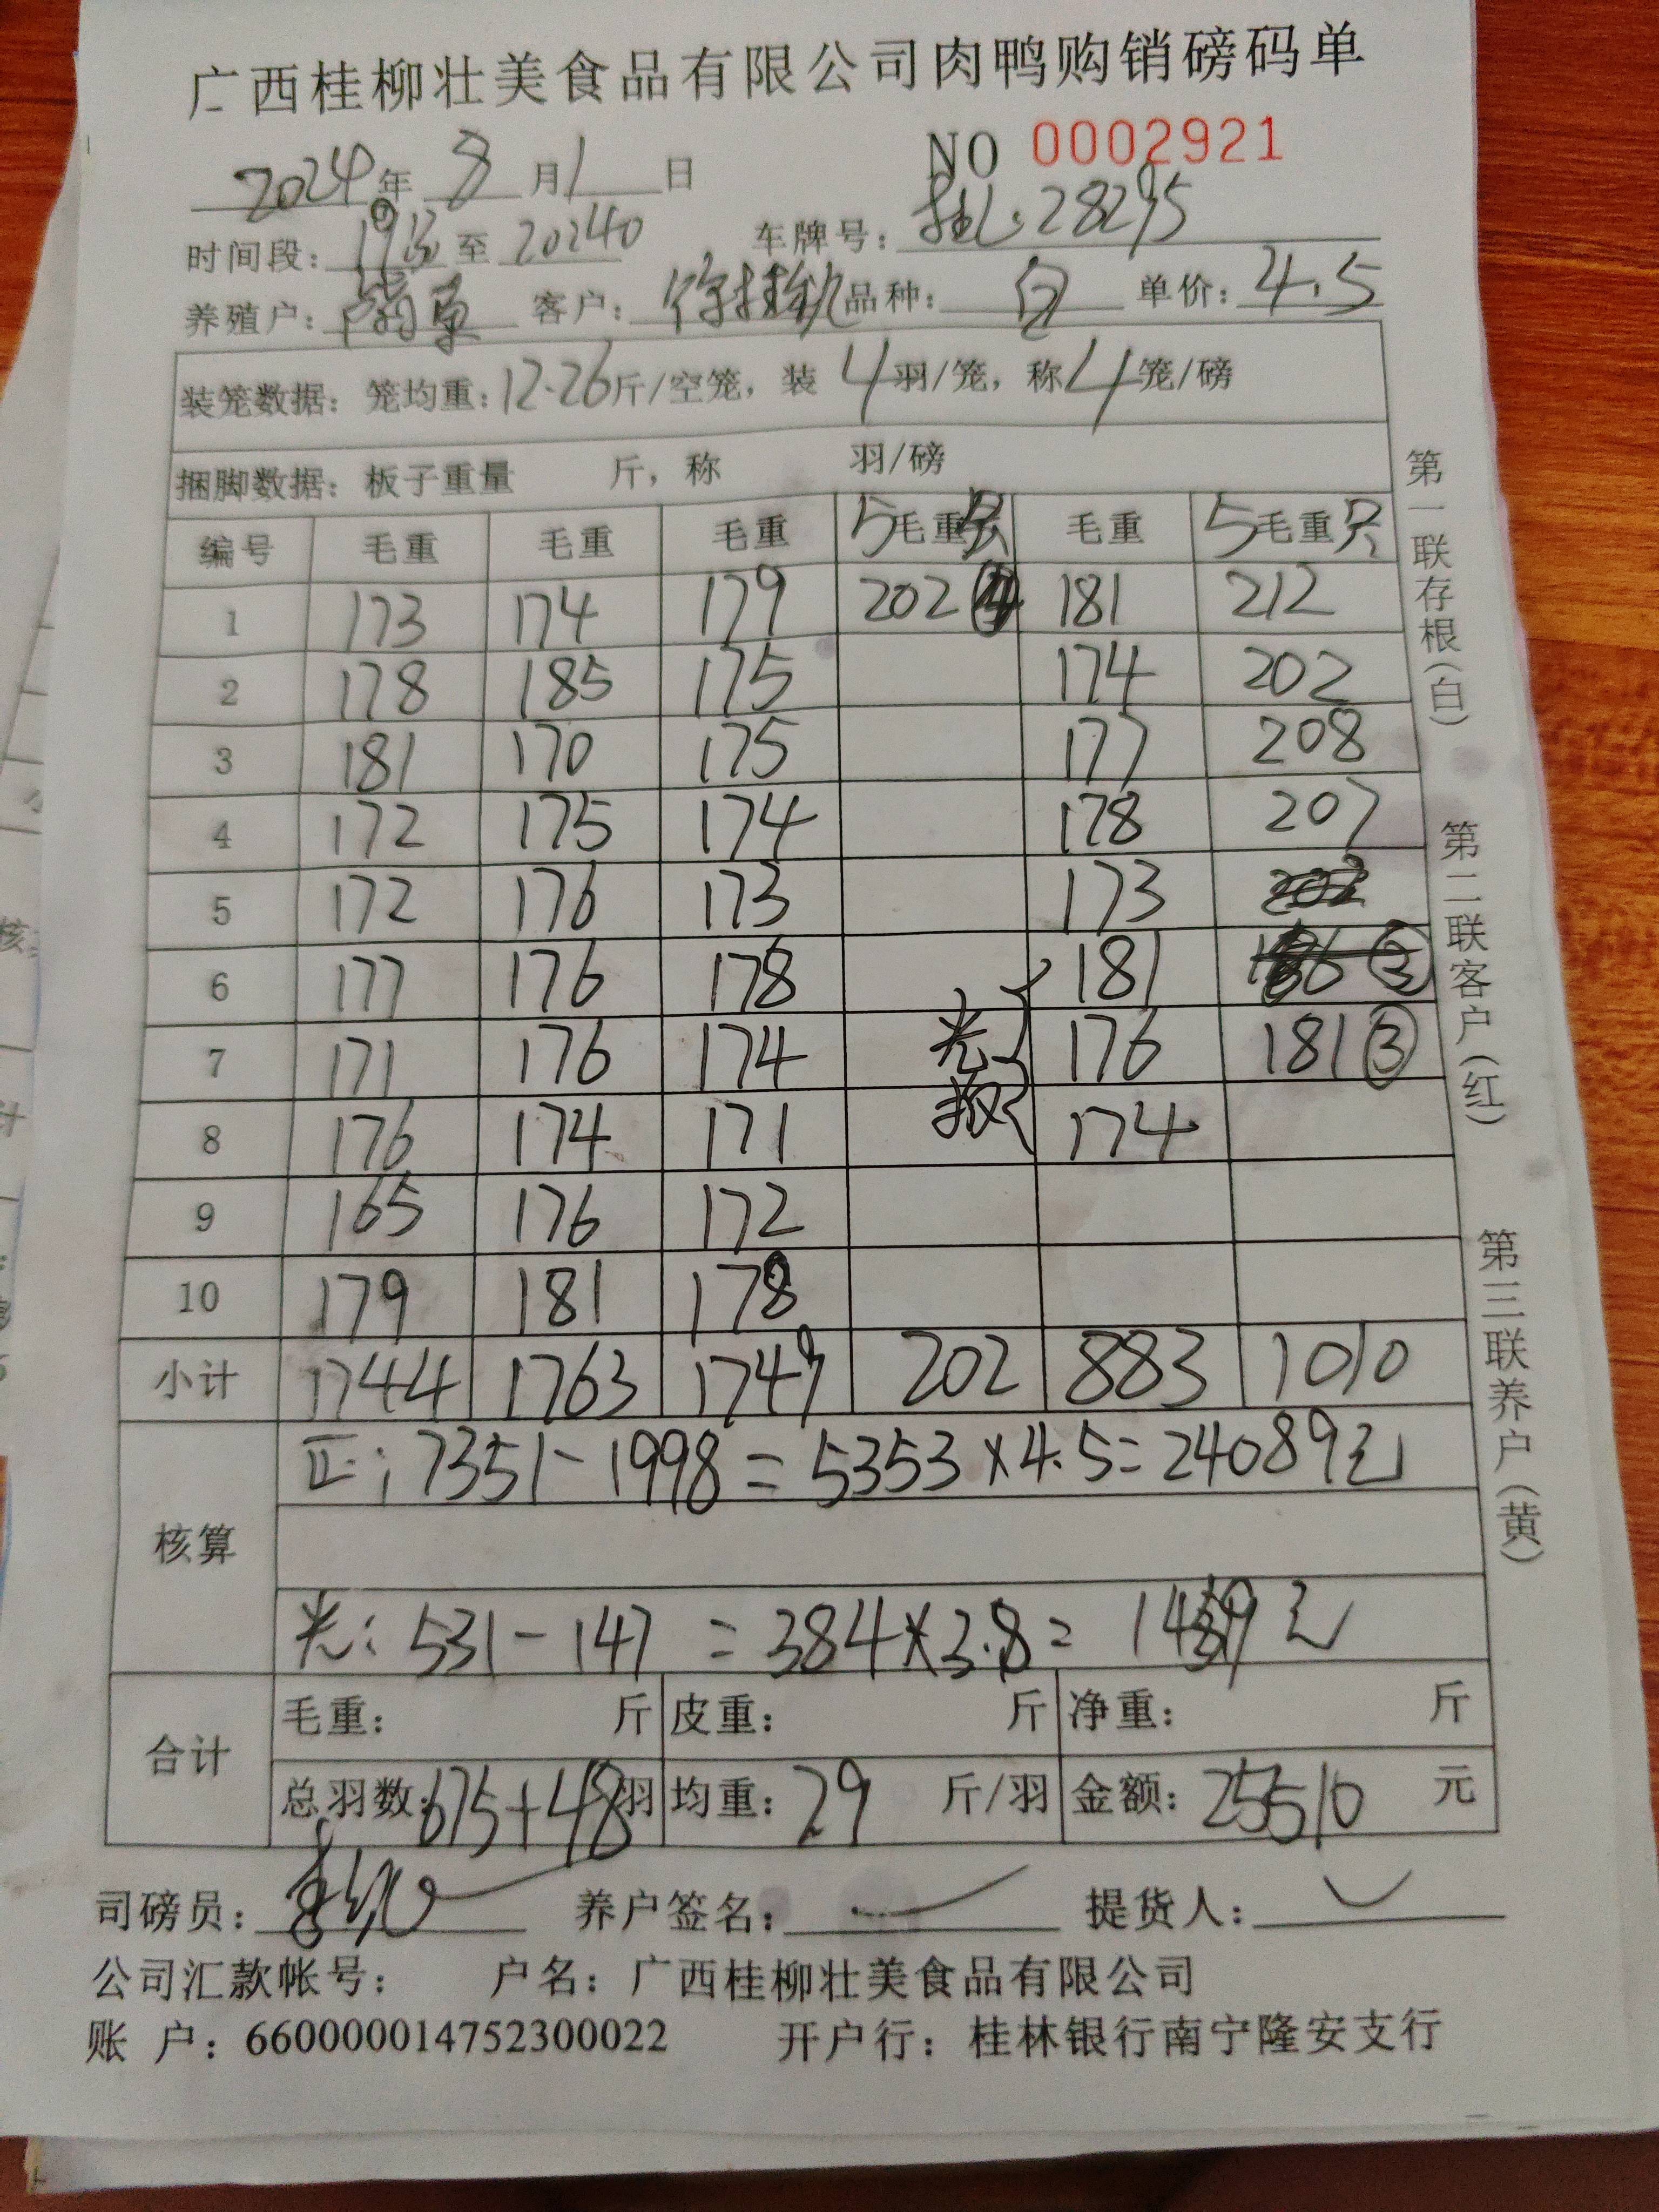 广西桂柳壮美食品有限公司肉鸭购销磅码单
NO 0002921
2024年 8 月 1 日
时间段： 至 20240 车牌号： 28295
养殖户： 客户： 品种：白 单价：4.5
装笼数据：笼均重：12.26斤/空笼，装 4 羽/笼，称 4 笼/磅
捆脚数据：板子重量 斤，称 羽/磅
编号 毛重 毛重 毛重 5毛重 毛重 5毛重只
1 173 174 179 202 181 212
2 178 185 175 174 202
3 181 170 175 177 208
4 172 175 174 178 207
5 172 176 173 173
6 177 176 178 181
7 171 176 174 光 176 181③
8 176 174 171 174
9 165 176 172
10 179 181 178
小计 1744 1763 1749 202 883 1010
核算
正：7351-1998=5353×4.5=24089元
光：531-147=384×3.8=1459元
合计
毛重： 斤 皮重： 斤 净重： 斤
总羽数：675+48羽 均重：29 斤/羽 金额：25510 元
司磅员： 养户签名： 提货人：
公司汇款帐号： 户名：广西桂柳壮美食品有限公司
账 户：660000014752300022 开户行：桂林银行南宁隆安支行
第一联存根（白）
第二联客户（红）
第三联养户（黄）